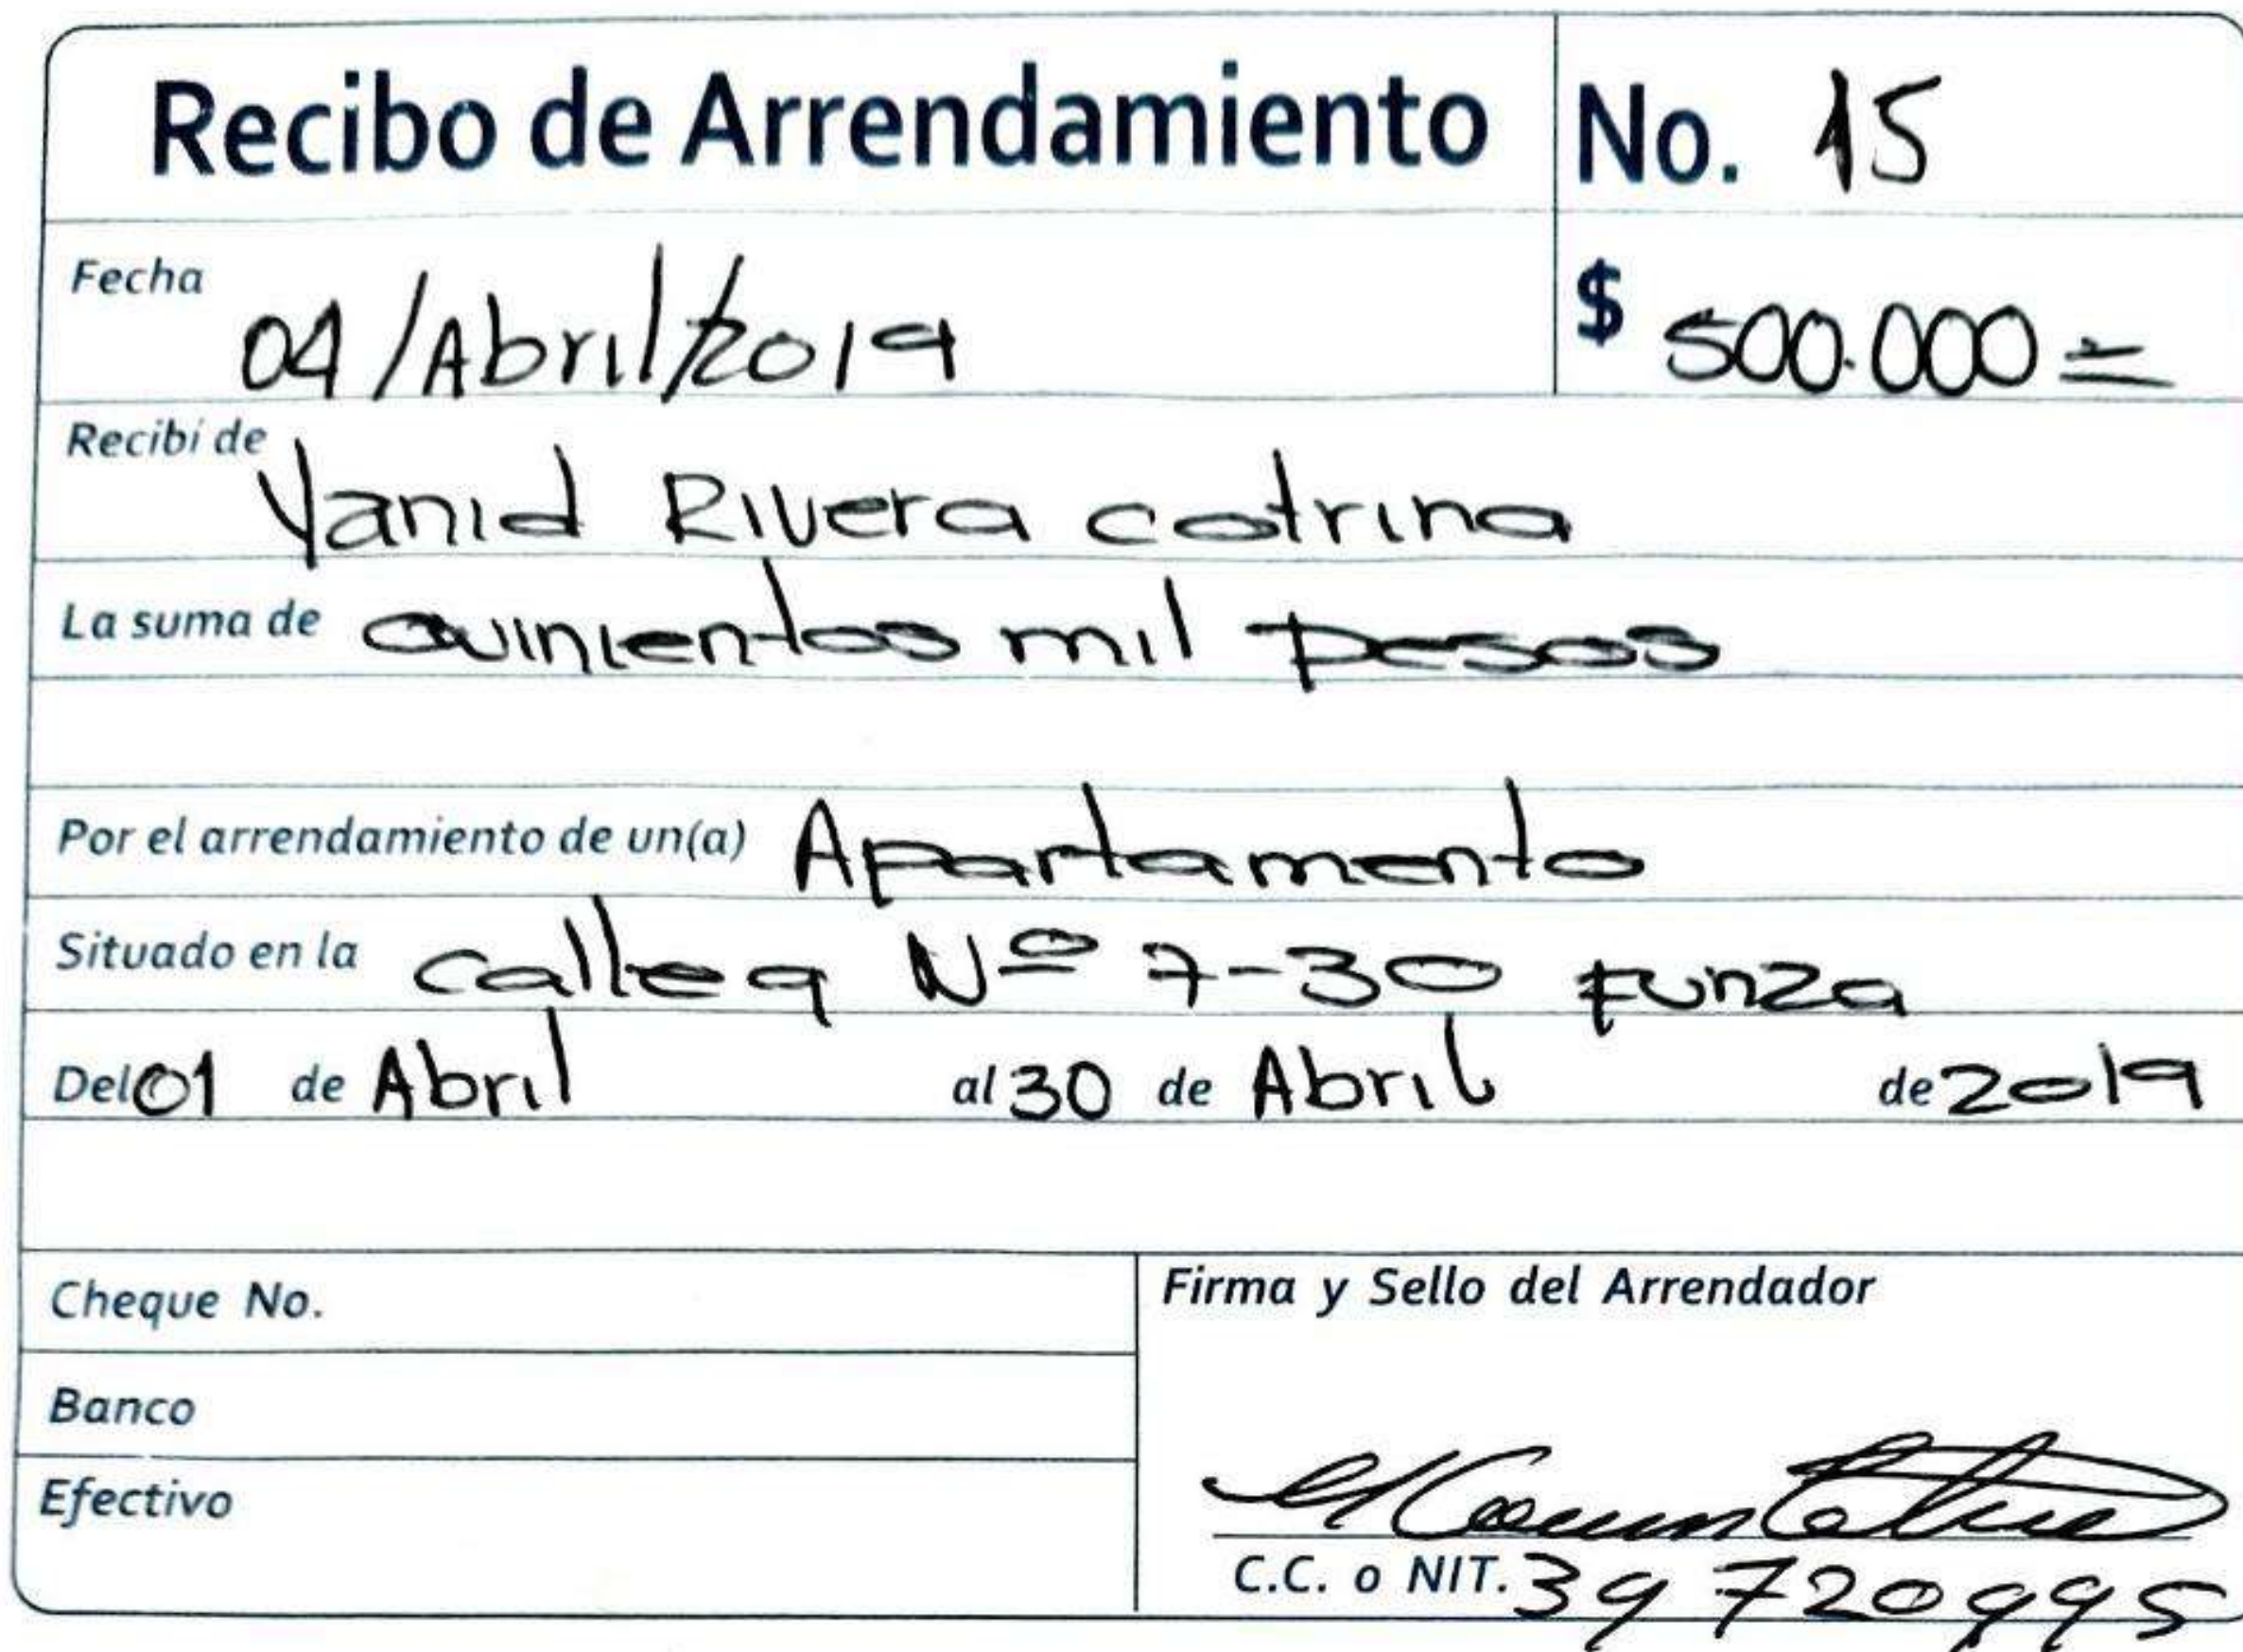 Recibo de Arrendamiento No. 15
Fecha 04/Abril/2019 $ 500.000=
Recibí de Yanid Rivera cotrina
La suma de Quinientos mil pesos
Por el arrendamiento de un(a) Apartamento
Situado en la calle 9 Nº 7-30 Funza
Del 01 de Abril al 30 de Abril de 2019
Cheque No.
Firma y Sello del Arrendador
Banco
Efectivo
C.C. o NIT. 39720995